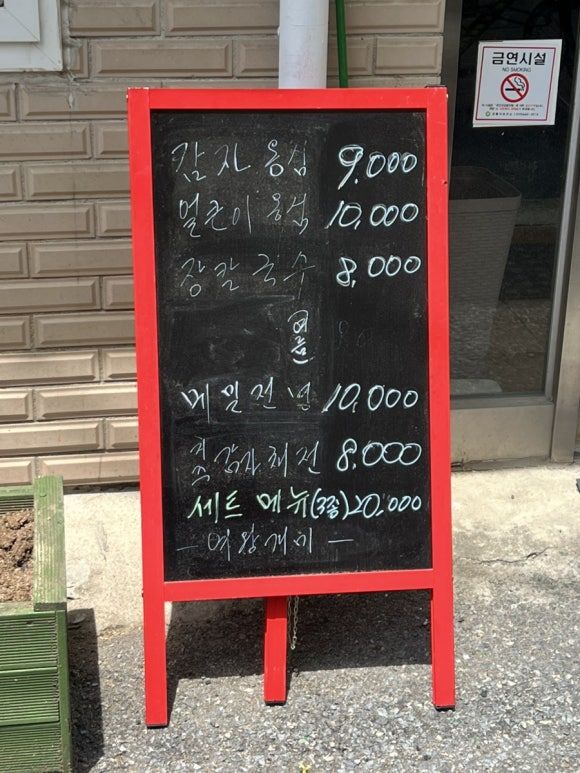 금연시설
NO SMOKING
감자 옹심 9,000
얼큰이 옹심 10,000
장칼국수 8,000
(여름)
메밀전병 10,000
치즈감자채전 8,000
세트 메뉴(3종)20,000
- 여왕개미 -